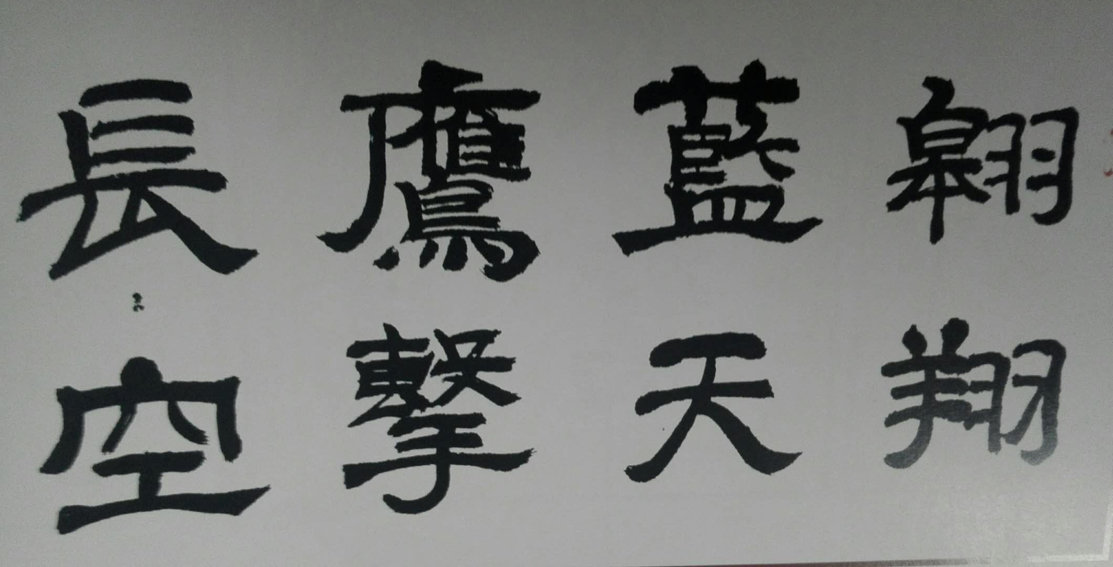 翱翔
藍天
鷹擊
長空